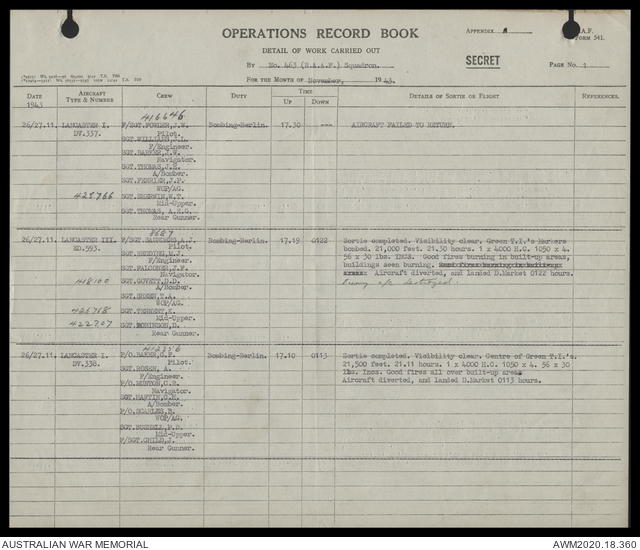 APPENDIX A
R.A.F. FORM 541.
OPERATIONS RECORD BOOK
DETAIL OF WORK CARRIED OUT
SECRET
BY No. 463 (R.A.A.F.) Squadron.
PAGE NO. 1
FOR THE MONTH OF November, 1943.
DATE 1943 AIRCRAFT TYPE & NUMBER CREW DUTY TIME UP DOWN DETAILS OF SORTIE OR FLIGHT REFERENCES.
416646
26/27.11. LANCASTER I. F/SGT.FOWLER,J.W. Bombing-Berlin. 17.30 --- AIRCRAFT FAILED TO RETURN.
DV.337. Pilot.
SGT.WILLIAMS,J.L.
F/Engineer.
SGT.BARKER,J.W.
Navigator.
SGT.THOMAS,J.H.
A/Bomber.
SGT.FERRIER,J.P.
WOP/AG.
425766 SGT.SHERWIN,W.T.
Mid-Upper.
SGT.THOMAS, A.E.G.
Rear Gunner.
8687
26/27.11. LANCASTER III. F/SGT.SAUNDERS,A.J. Bombing-Berlin. 17.19 0122 Sortie completed. Visibility clear. Green T.I.'s Markers
ED.593. Pilot. bombed. 21,000 feet. 21.30 hours. 1 x 4000 H.C. 1050 x 4.
56 x 30 lbs. INCS. Good fires burning in built-up areas,
F/Engineer. buildings seen burning. Good fires burning in built-up
SGT.FALCONER,J.F. areas. Aircraft diverted, and landed D.Market 0122 hours.
Navigator. Enemy a/c destroyed.
418100 SGT.GOVETT,D.D.
A/Bomber.
SGT.GREEN,T.A.
WOP/AG.
426788
Mid-Upper.
422707 SGT.ROBINSON,D.
Rear Gunner.
412356
26/27.11. LANCASTER I. P/O.BAKER,G.F. Bombing-Berlin. 17.10 0113 Sortie completed. Visibility clear. Centre of Green T.I.'s.
DV.338. Pilot. 21,500 feet. 21.11 hours. 1 x 4000 H.C. 1050 x 4. 56 x 30
SGT.ROSER, A. lbs. Incs. Good fires all over built-up areas
F/Engineer. Aircraft diverted, and landed D.Market 0113 hours.
Navigator.
A/Bomber.
P/O.SCARLES,B.
WOP/AG.
Mid-Upper.
F/SGT.CHILD,J.
Rear Gunner.
AUSTRALIAN WAR MEMORIAL
AWM2020.18.360